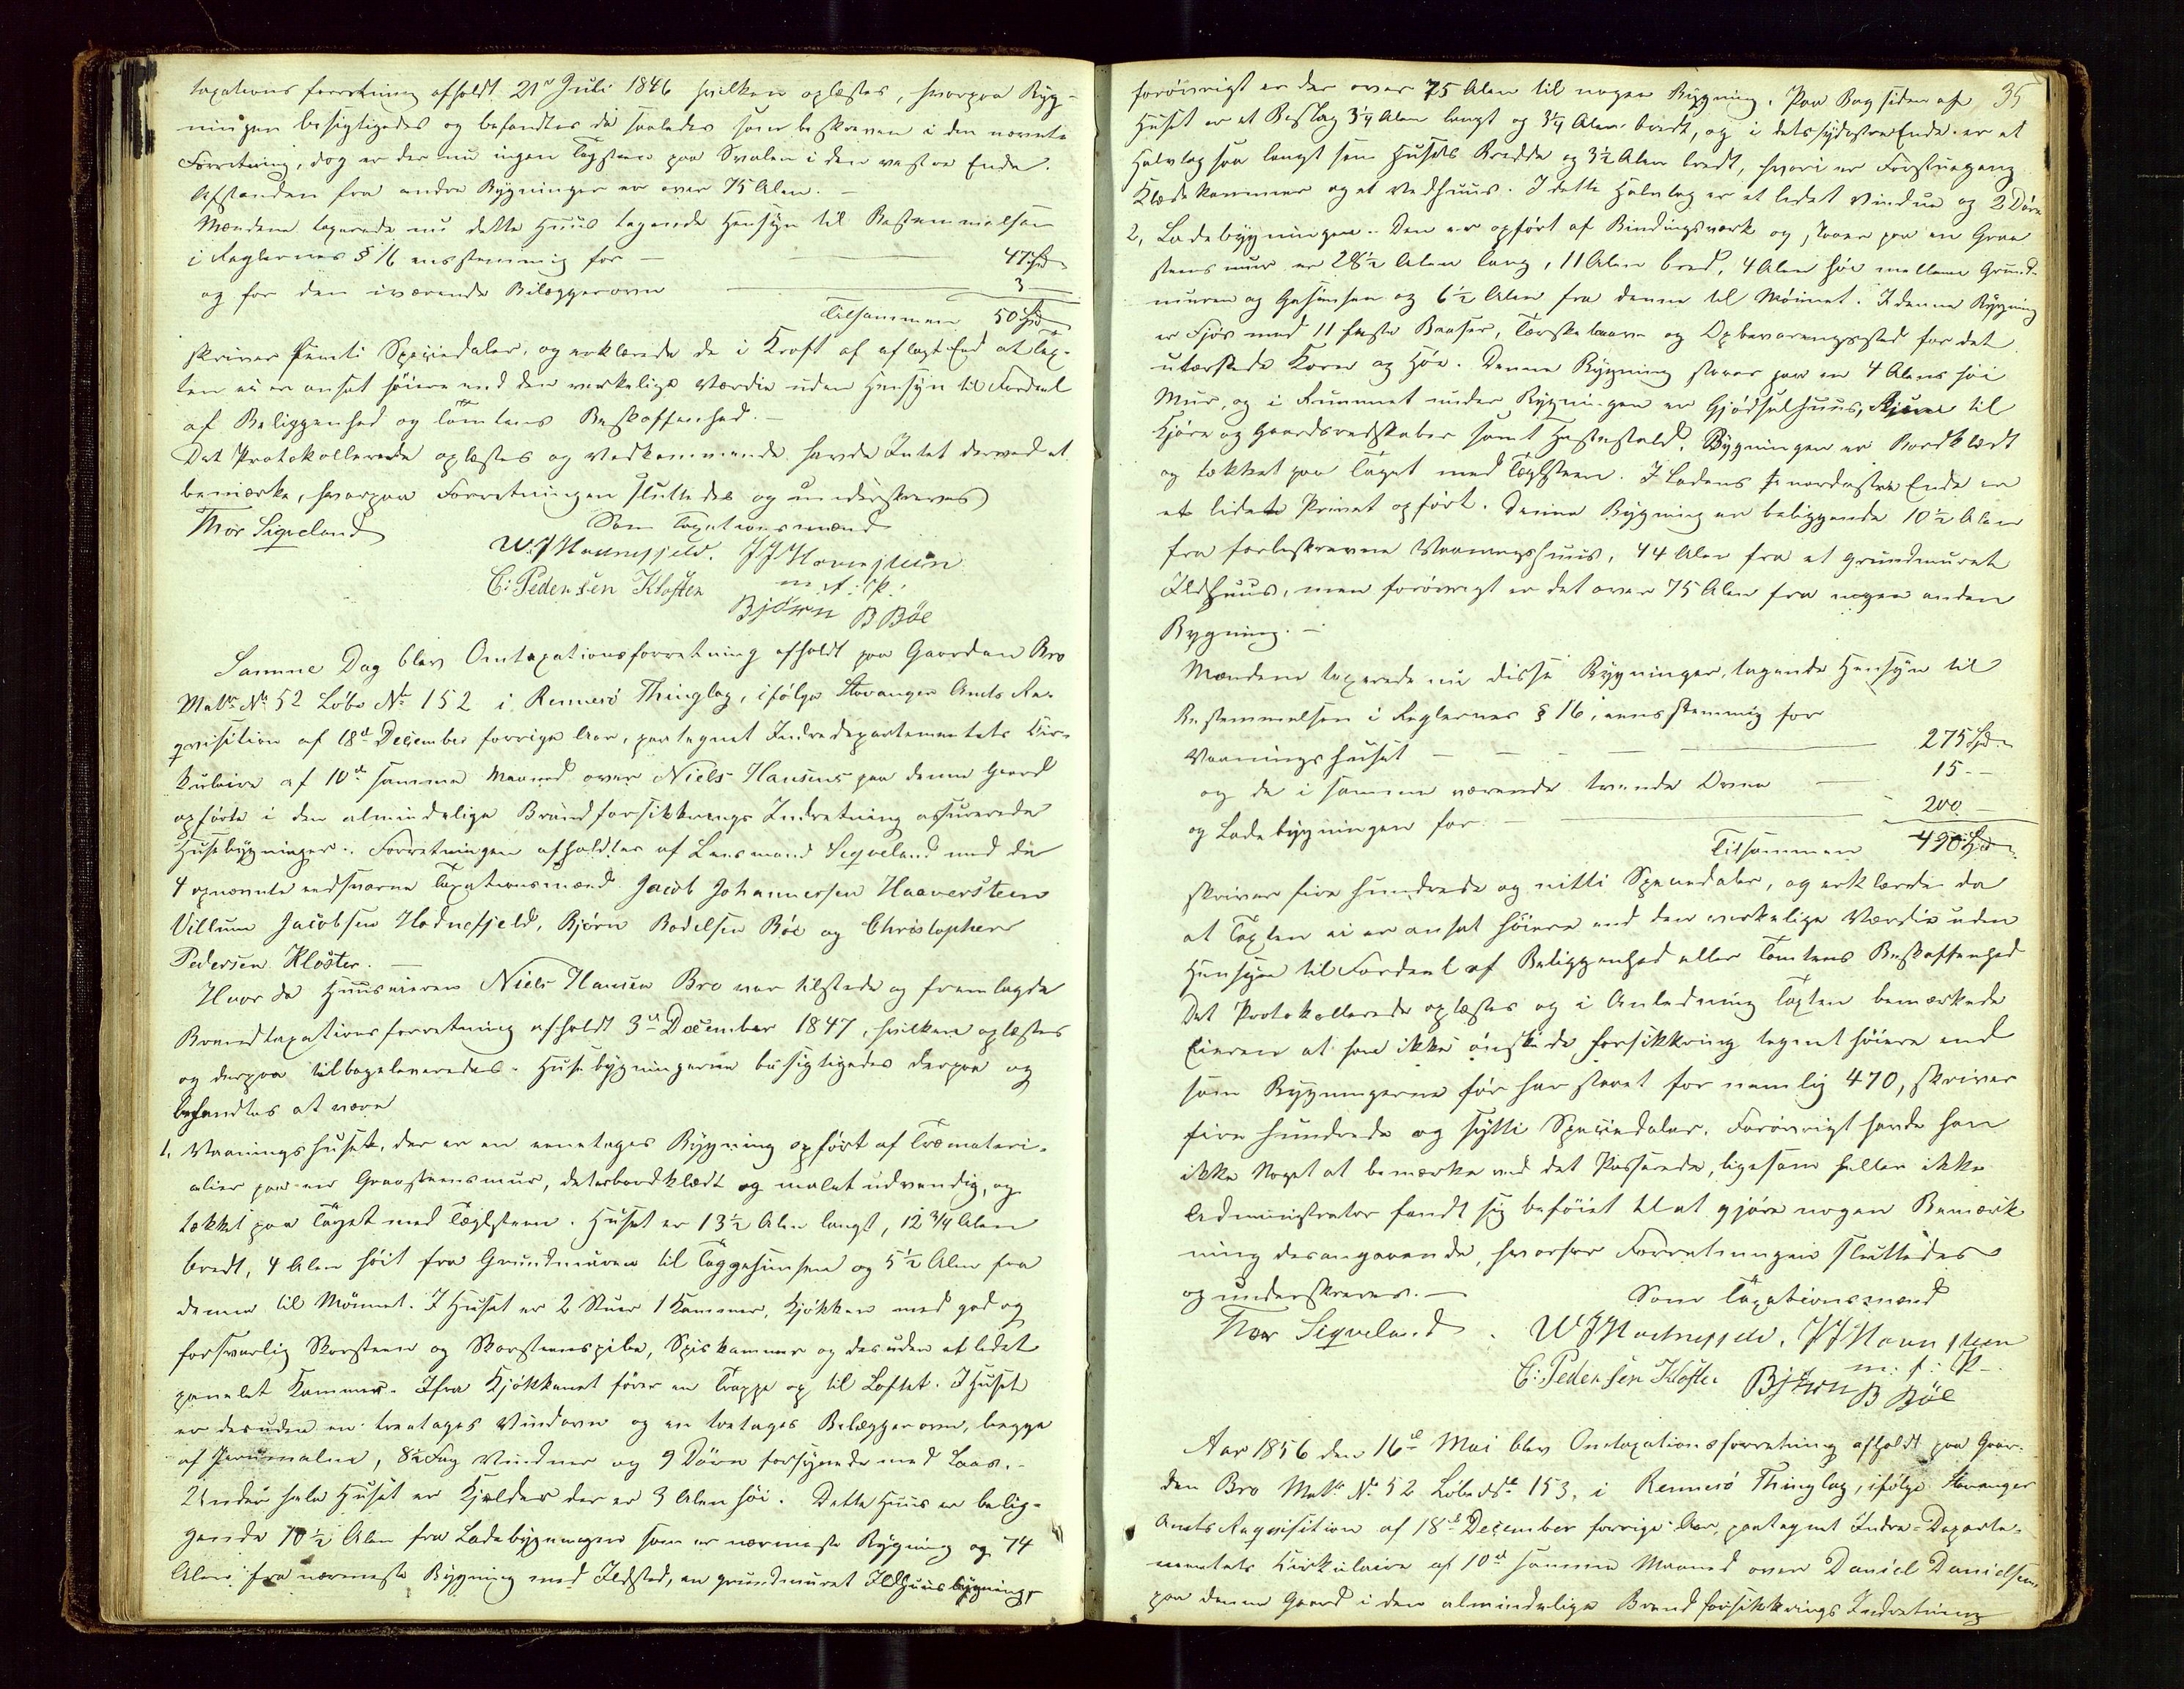 taxations forretning afholdt 21de Juli 1846 hvilken oplæstes, hvorpaa Byg-
ningen besigtigedes og befandtes da saaledes som beskreven i den nævnte
Forretning, dog er der nu ingen Taghsteen paa Svalen i den vestre Ende.
Afstanden fra andre Bygninger er over 75 Alen. —
Mændene taxerede nu dette Huus tagende Hensyn til Bestemmelsen
i Reglernes § 16 eensstemmig for — 47 Spd
og for den iværende Bilæggerovn — 3 —
Tilsammen 50 Spd
skriver femti Speciedaler, og erklærede de i Kraft af aflagt Eed at Tax-
ten ei er ansat høiere end den virkelige Værdie uden Hensyn til Fordeel
af Beliggenhed og Tomtens Beskaffenhed. —
Det Protokollerede oplæstes og Vedkommende havde Intet derved at
bemærke, hvorpaa Forretningen sluttedes og underskreves
Thor Sigveland Som Taxationsmænd
W. J Hadnefjeld. J J Haverstein
C: Pedersen Kloster m. f. P.
Bjørn B Bøe
Samme Dag blev Omtaxationsforretning afholdt paa Gaarden Bro
Matr. No 52 Løbe No 152 i Rennesø Thinglag, ifølge Stavanger Amts Re-
qvisition af 18de December forrige Aar, paategnet Indredepartementets Cir-
kulaire af 10de samme Maaned over Niels Hansens paa denne Gaard
opførte i den almindelige Brandforsikkrings Indretning assurerede
Husebygninger. Forretningen afholdtes af Lensmand Sigveland med de
4 opnævnte eedsvorne Taxationsmænd Jacob Johannessen Haaversteen
Villum Jacobsen Hodnefjeld, Bjørn Bodelsen Bøe og Christopher
Pedersen Kloster. —
Hvor da Huuseieren Niels Hansen Bro var tilstede og fremlagde
Brandtaxationsforretning afholdt 3de December 1847, hvilken oplæstes
og derpaa tilbageleveredes. Husebygningerne besigtigedes derpaa og
befandtes at være
1, Vaaningshuset, der er en eenetages Bygning opført af Træmateri-
alier paa en Graasteensmuur, det er bordklædt og malet udvendig, og
tækket paa Taget med Teglsteen. Huset er 13½ Alen langt, 12¾ Alen
bredt, 4 Alen høit fra Grundmuren til Taggesimsen og 5½ Alen fra
denne til Mønnet. I Huset er 2 Stuer 1 Kammer, Kjøkken med god og
forsvarlig Skorsteen og Skorsteenspibe, Spiskammer og desuden et lidet
panelet Kammer. Ifra Kjøkkenet fører en Trappe op til Loftet. I Huset
er desuden en treetages Vindovn og en toetages Bilæggerovn, begge
af Jernmalm, 8½ Fag Vinduer og 9 Døre forsynede med Laas. —
Under hele Huset er Kjelder der er 3 Alen høi. Dette Huus er belig-
gende 10½ Alen fra Ladebygningen som er nærmeste Bygning og 74
Alen fra nærmeste Bygning med Ildsted, en grundmuret Ildhuusbygning,
35
forøvrigt er der over 75 Alen til nogen Bygning. Paa Bagsiden af
Huset er et Beslag 3¼ Alen langt og 3¼ Alen bredt, og i dets sydøstre Ende er et
Halvtag saa langt som Husets Bredde og 3½ Alen bredt, hvori er Forstuegang
Klædekammer og et Vedhuus. I dette Halvtag er et lidet Vindue og 2 Døre
2, Ladebygningen. Den er opført af Bindingsværk og, staaer paa en Graa
steensmuur er 28½ Alen lang, 11 Alen bred, 4 Alen høi mellem Grund-
muren og Gesimsen og 6½ Alen fra denne til Mønnet. I denne Bygning
er Fjøs med 11 faste Baaser, Tærskelaave og Opbevaringssted for det
utærskede Korn og Høe. Denne Bygning staaer paa en 4 Alens høi
Muur, og i Rummet under Bygningen er Gjødselhuus, til
Kjøre og Gaardsredskaber samt Hestestald. Bygningen er Bordklædt
og tækket paa Taget med Teglsteen. I Ladens nordøstre Ende er
et lidet Privet opført. Denne Bygning er beliggende 10½ Alen
fra forbeskrevne Vaaningshuus, 44 Alen fra et grundmuret
Ildhuus, men forøvrigt er det over 75 Alen fra nogen anden
Bygning. —
Mændene taxerede nu disse Bygninger, tagende Hensyn til
Bestemmelsen i Reglernes § 16, eensstemmig for
Vaaningshuset — 275 Spd
og de i samme værende tvende Ovne — 15 —
og Ladebygningen for — 200 —
Tilsammen 490 Spd
skriver fire hundrede og nitti Speciedaler, og erklærede de
at Taxten ei er ansat høiere end den virkelige Værdie uden
Hensyn til Fordeel af Beliggenhed eller Tomtens Beskaffenhed
Det Protokollerede oplæstes og i Anledning Taxten bemærkede
Eieren at han ikke ønskede Forsikkring tegnet høiere end
som Bygningerne før har staaet for nemlig 470, skriver
fire hundrede og sytti Speciedaler. Forøvrigt havde han
ikke Noget at bemærke ved det Passerede, ligesom heller ikke
Administrator fandt sig beføiet til at gjøre nogen Bemærk-
ning desangaaende, hvorfor Forretningen sluttedes
og underskreves. — Som Taxationsmænd
Thor Sigveland. W J Hadnefjeld. J J Haversteen
C: Pedersen Kloster m. f. P.
Bjørn B Bøe
Aar 1856 den 16de Mai blev Omtaxationsforretning afholdt paa Gaar-
den Bro Matr No 52 Løbe No 153, i Rennesø Thinglag, ifølge Stavanger
Amts Reqvisition af 18de December forrige Aar, paategnet Indre-Departe-
mentets Cirkulaire af 10de samme Maaned over Daniel Danielsens
paa denne Gaard i den almindelige Brandforsikkrings Indretning